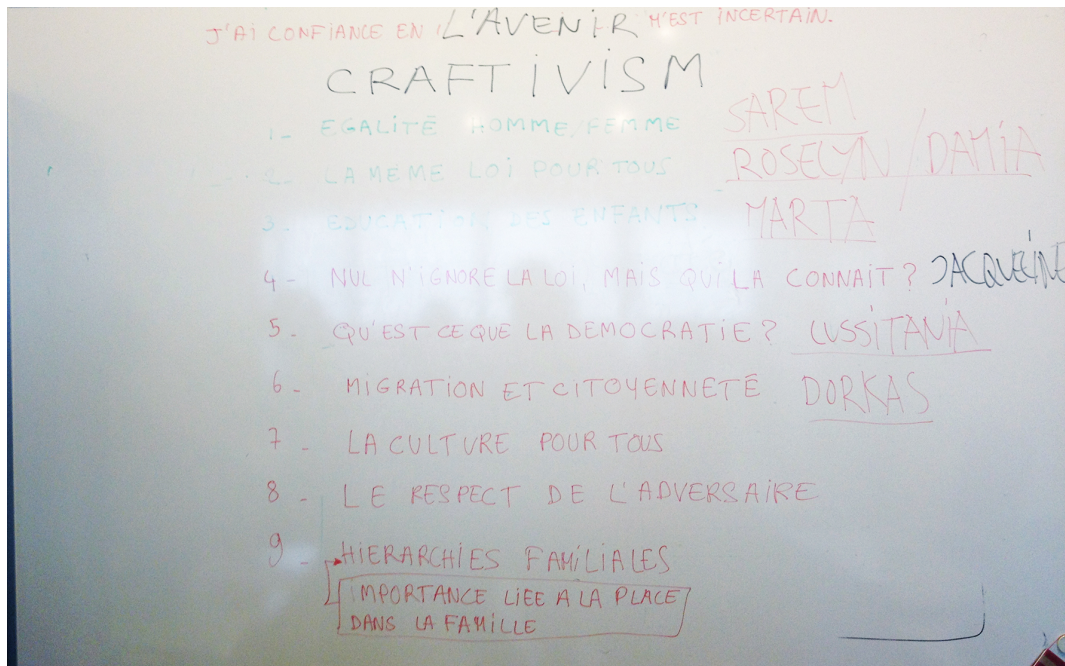 J'AI CONFIANCE EN L'AVENIR M'EST INCERTAIN.
CRAFTIVISM
1- EGALITÉ HOMME/FEMME SAREM
2- LA MEME LOI POUR TOUS ROSELYN/DAMIA
3- EDUCATION DES ENFANTS MARTA
4- NUL N'IGNORE LA LOI, MAIS QUI LA CONNAIT? JACQUELINE
5- QU'EST CE QUE LA DEMOCRATIE? LUSSITANIA
6- MIGRATION ET CITOYENNETÉ DORKAS
7- LA CULTURE POUR TOUS
8- LE RESPECT DE L'ADVERSAIRE
9- HIERARCHIES FAMILIALES
IMPORTANCE LIEE A LA PLACE
DANS LA FAMILLE